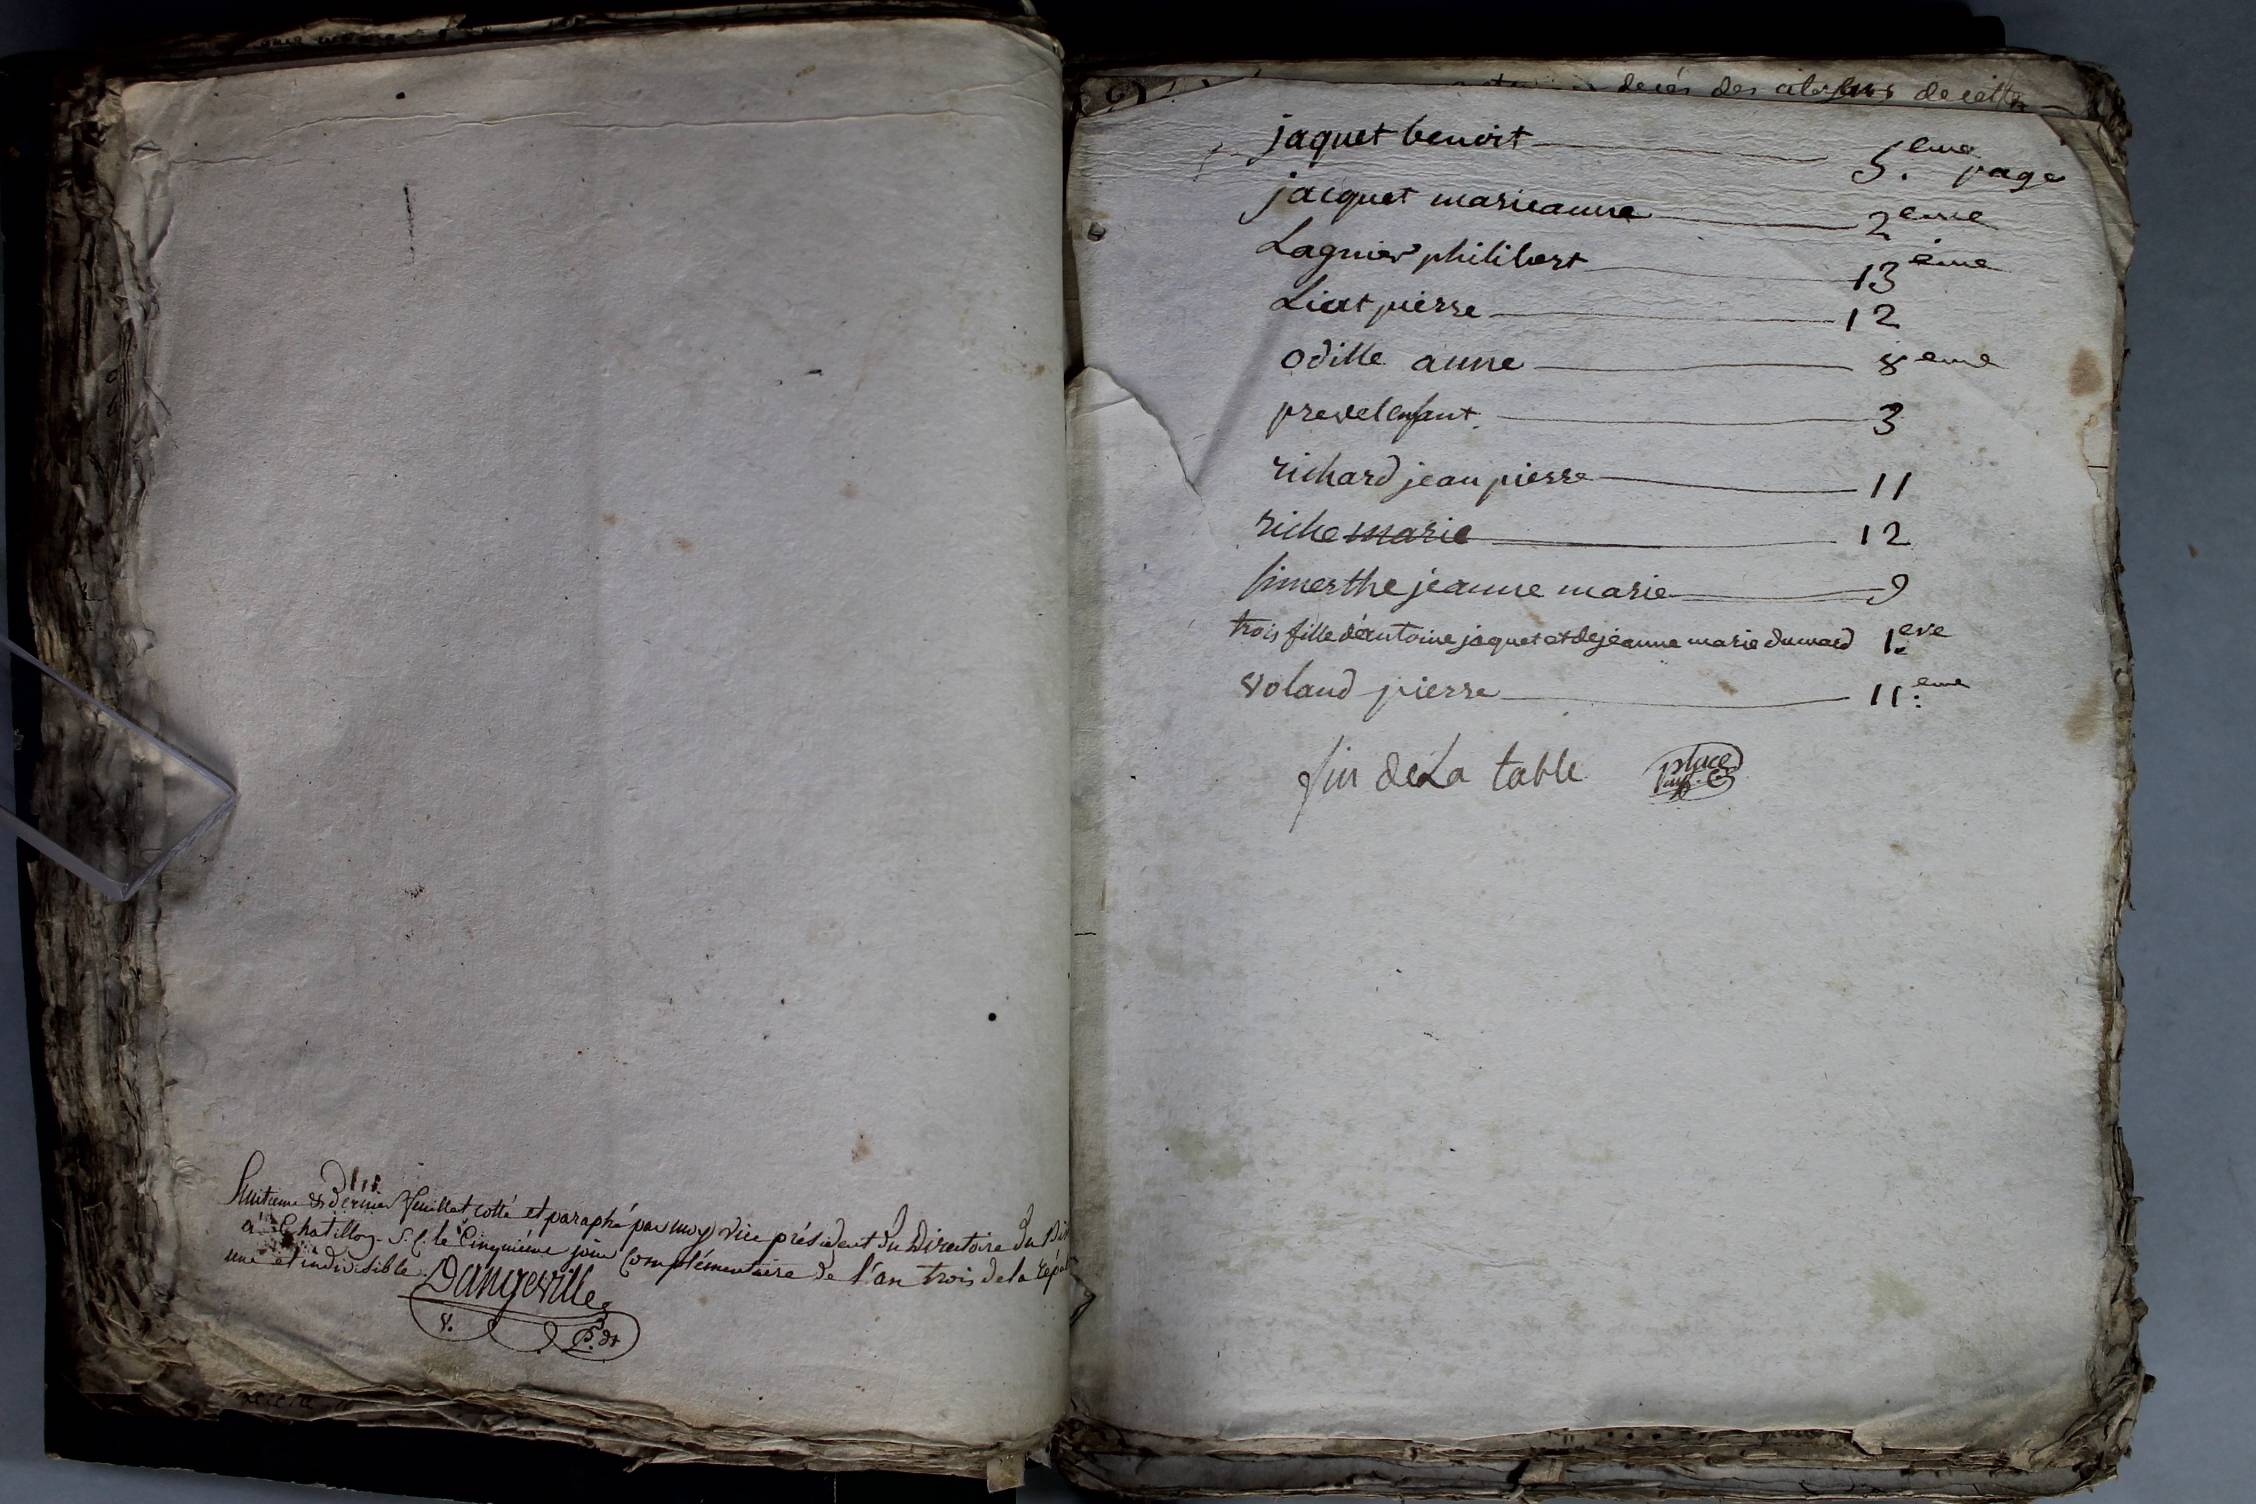 huitieme & dernier feuillet cotté et paraphé par moy vice président du Directoire du Dis
a Chatillon S. C. le Cinquième jour Complémentaire de l'an trois de la répu
une et indivisible. Dangeville
v. P.dt
decés des citoyens de cette
jaquet benoit 5.eme page
jacquet marieanne 2eme
Lagnier philibert 13eme
Liat pierre 12
odille anne 8eme
prevel enfant 3
richard jean pierre 11
riche marie 12
simerthe jeanne marie 9
trois fille d'éantoine jaquet et de jeanne marie dumard 1.ere
voland pierre 11.eme
fin de La table place